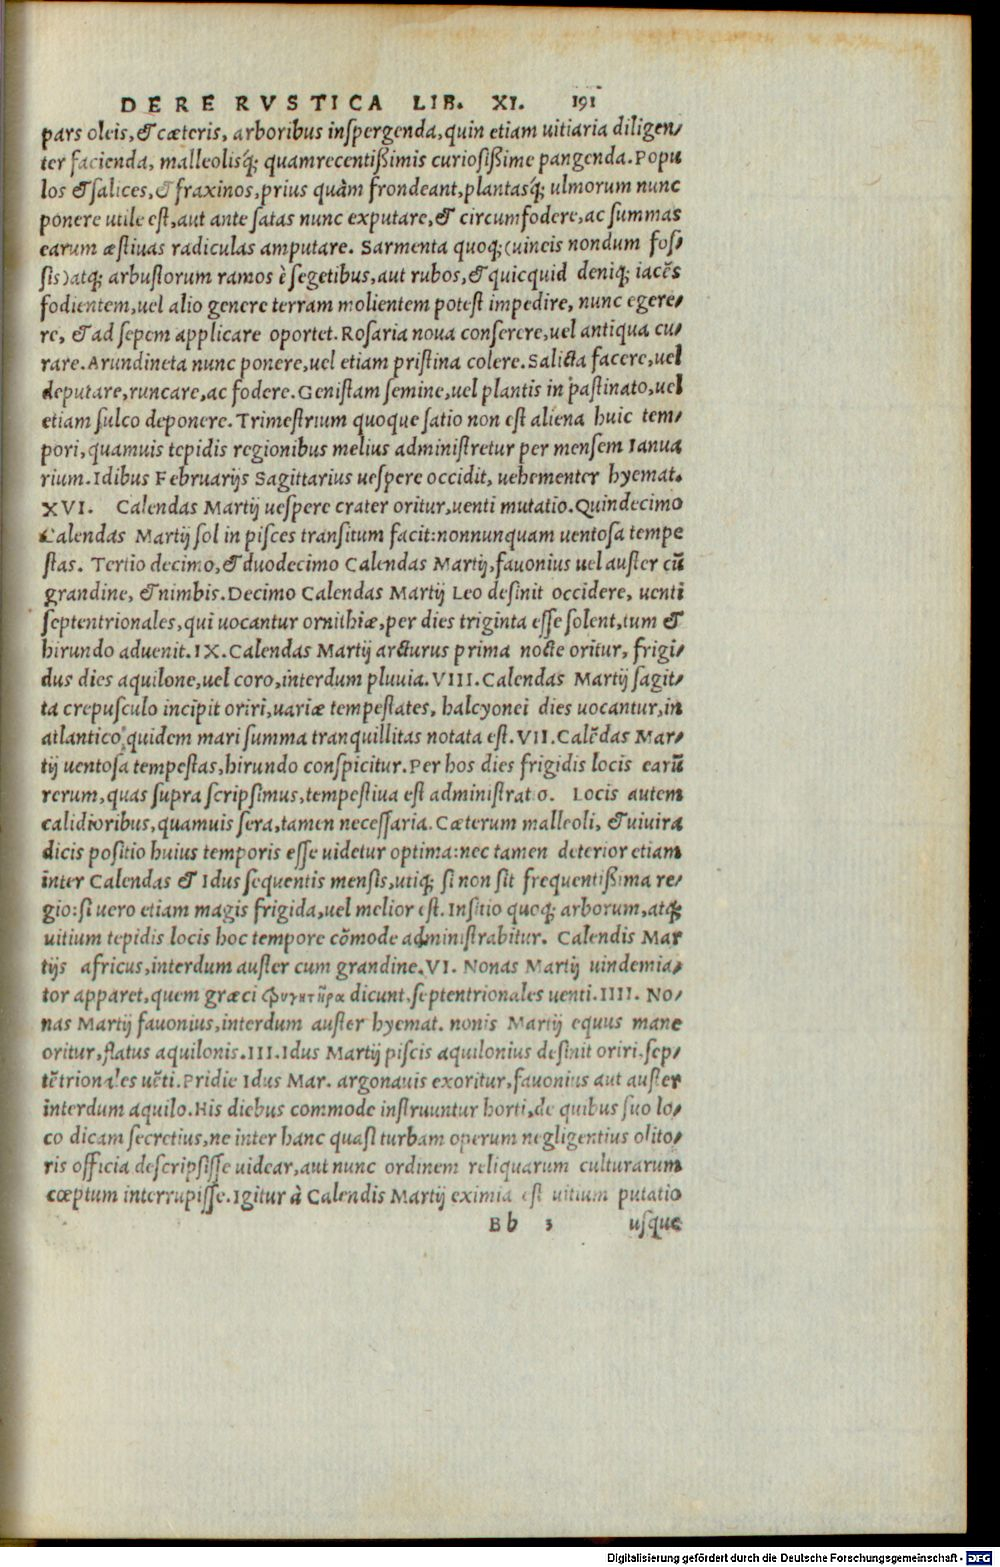 DE RE RVSTICA LIB. XI. 191
pars oleis, & cæteris, arboribus inſpergenda, quin etiam uitiaria diligen⸗
ter facienda, malleoliſq́; quamrecentißimis curioſißime pangenda. Popu
los & ſalices, & fraxinos, prius quàm frondeant, plantaſq́; ulmorum nunc
ponere utile eſt, aut ante ſatas nunc exputare, & circumfodere, ac ſummas
earum æſtiuas radiculas amputare. Sarmenta quoq; (uineis nondum foſ⸗
ſis) atq; arbuſtorum ramos è ſegetibus, aut rubos, & quicquid deniq; iacẽs
fodientem, uel alio genere terram molientem poteſt impedire, nunc egere⸗
re, & ad ſepem applicare oportet. Roſaria noua conſerere, uel antiqua cu⸗
rare. Arundineta nunc ponere, uel etiam priſtina colere. Salicta facere, uel
deputare, runcare, ac fodere. Geniſtam ſemine, uel plantis in paſtinato, uel
etiam ſulco deponere. Trimeſtrium quoque ſatio non eſt aliena huic tem⸗
pori, quamuis tepidis regionibus melius adminiſtretur per menſem Ianua
rium. Idibus Februarijs Sagittarius ueſpere occidit, uehementer hyemat.
XVI. Calendas Martij ueſpere crater oritur, uenti mutatio. Quindecimo
Calendas Martij ſol in piſces tranſitum facit: nonnunquam uentoſa tempe
ſtas. Tertio decimo, & duodecimo Calendas Martij, fauonius uel auſter cũ
grandine, & nimbis. Decimo Calendas Martij Leo deſinit occidere, uenti
ſeptentrionales, qui uocantur ornithiæ, per dies triginta eſſe ſolent, tum &
hirundo aduenit. IX. Calendas Martij arcturus prima nocte oritur, frigi⸗
dus dies aquilone, uel coro, interdum pluuia. VIII. Calendas Martij ſagit⸗
ta crepuſculo incipit oriri, uariæ tempeſtates, halcyonei dies uocantur, in
atlantico quidem mari ſumma tranquillitas notata eſt. VII. Calẽdas Mar⸗
tij uentoſa tempeſtas, hirundo conſpicitur. Per hos dies frigidis locis earũ
rerum, quas ſupra ſcripſimus, tempeſtiua eſt adminiſtratio. Locis autem
calidioribus, quamuis ſera, tamen neceſſaria. Cæterum malleoli, & uiuira
dicis poſitio huius temporis eſſe uidetur optima: nec tamen deterior etiam
inter Calendas & Idus ſequentis menſis, utiq; ſi non ſit frequentißima re⸗
gio: ſi uero etiam magis frigida, uel melior eſt. Inſitio quoq; arborum, atq;
uitium tepidis locis hoc tempore cõmode adminiſtrabitur. Calendis Mar
tijs africus, interdum auſter cum grandine. VI. Nonas Martij uindemia⸗
tor apparet, quem græci dicunt. ſeptentrionales uenti. IIII. No⸗
nas Martij fauonius, interdum auſter hyemat. nonis Martij equus mane
oritur, flatus aquilonis. III. Idus Martij piſcis aquilonius deſinit oriri. ſep⸗
tẽtrionales uẽti. Pridie Idus Mar. argonauis exoritur, fauonius aut auſter
interdum aquilo. His diebus commode inſtruuntur horti, de quibus ſuo lo⸗
co dicam ſecretius, ne inter hanc quaſi turbam operum negligentius olito⸗
ris officia deſcripſiſſe uidear, aut nunc ordinem reliquarum culturarum
cœptum interrupiſſe. Igitur à Calendis Martij eximia eſt uitium putatio
Bb 3 uſque
Digitalisierung gefördert durch die Deutsche Forschungsgemeinschaft - DFG